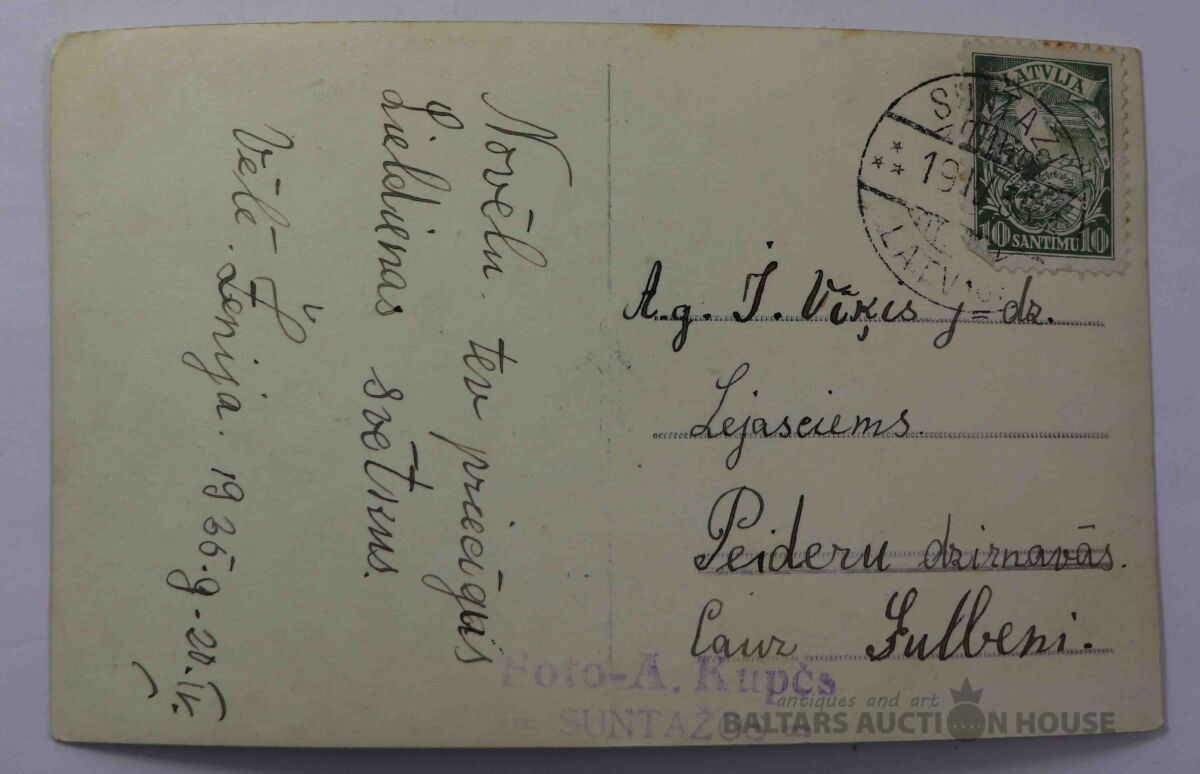 Novēlu tev priecīgus
Lieldienas svētkus.
Vēlē Ženija. 1935. g. 20. IV.
LATVIJA
10 SANTIMU 10
SUNTAŽI
LATVIJA
A.g. J. Vīķis j=dz.
Lejasciems.
Peideru dzirnavās.
Caur Gulbeni.
Foto-A. Kupčs
= SUNTAŽOS =
antiques and art
BALTARS AUCTION HOUSE